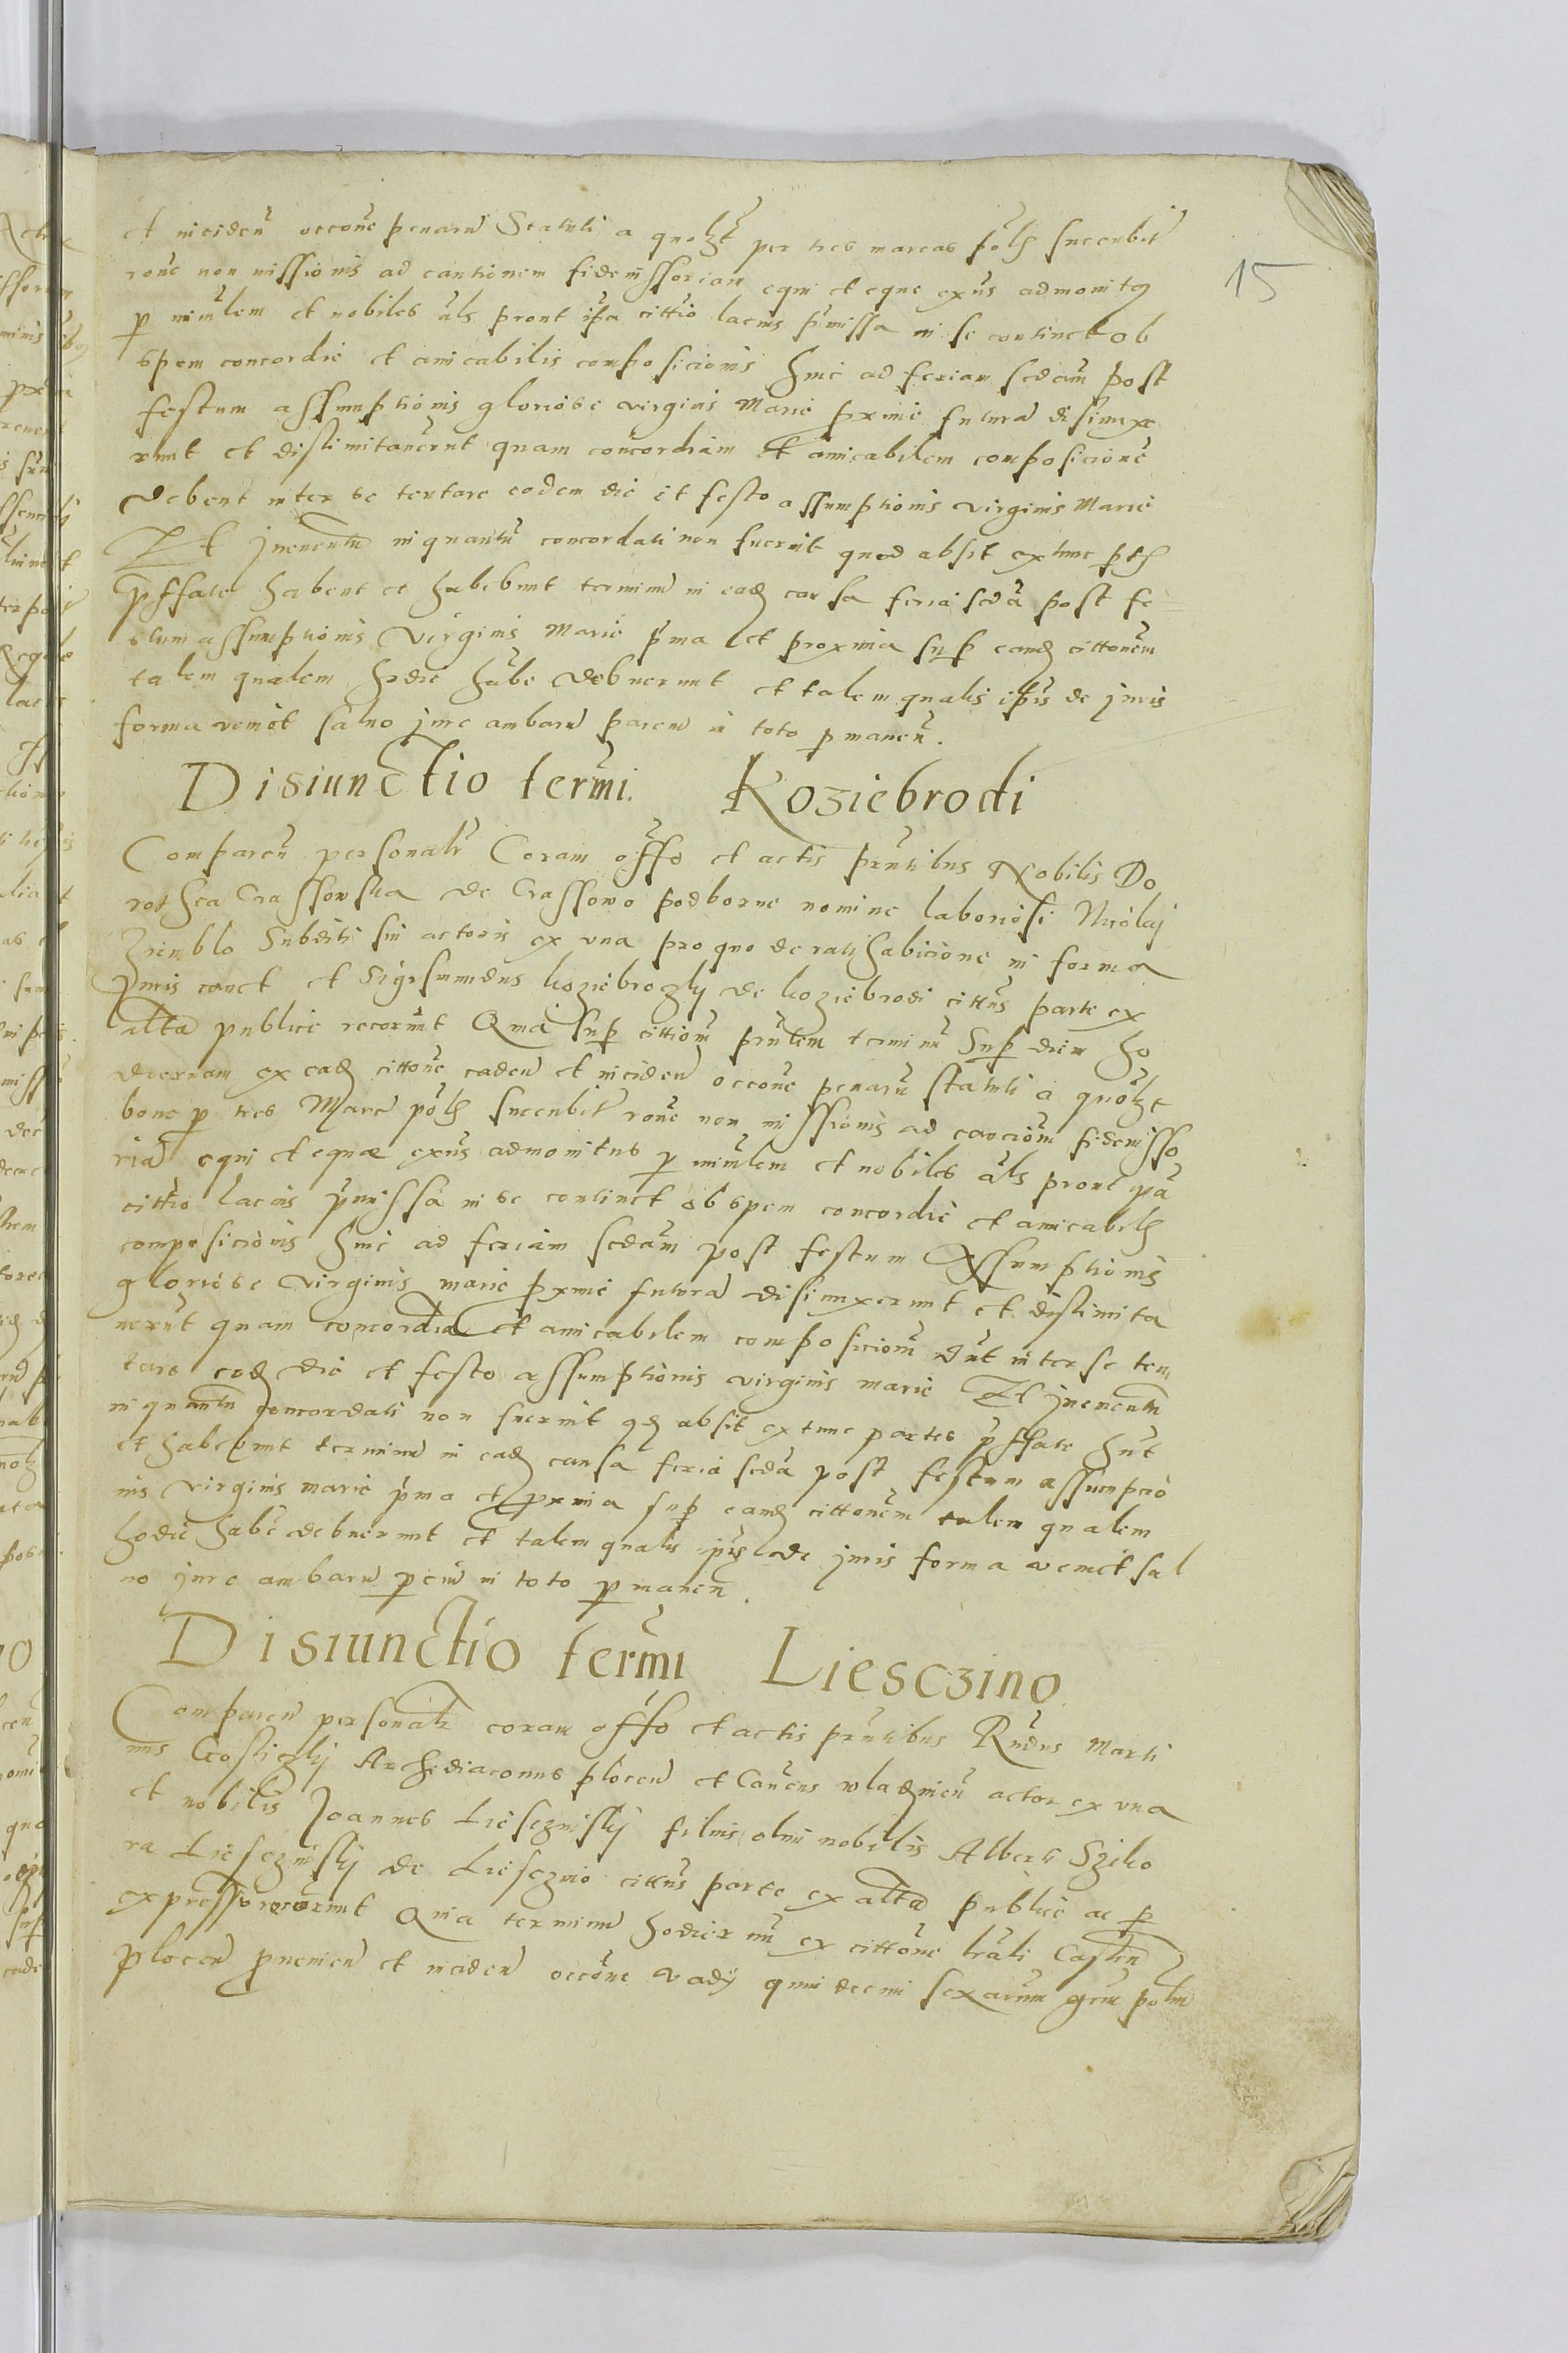 15
et inciden occone penarum Statuti a quolzt per tres marcas polh succubit
rone non missionis ad cautionem fideiussoriam equi et eque exus admonitus
p minlem et nobiles als prout ipa cittio lacius pmissa in se continet ob
spem concordie et amicabilis composicionis hinc ad feriam scdam post
festum assumptionis gloriose virginis Marie pxime futura disiunxe
runt et dislimitaverunt quam concordiam et amicabilem composicione
debent inter se tentare eodem die et festo assumptionis virginis Marie
Et ineventu inquantu concordati non fuerint quod absit extunc pth
pffate habent et habebunt terminu in eadz causa feria scda post fe
stum assumptionis Virginis Marie pma et proxima sup eandz cittonem
talem qualem hodie habe debuerunt et talem qualis ipis de juris
forma venit salvo jure ambaru parciu in toto pmanen.
Disiunctio termi. Koziebrodi
Comparen personalr Coram offo et actis pruntibus Nobilis Do
rothea Crassowska de Crassowo podborne nomine laboriosi Nicolaj
Zremblo Subditi sui actoris ex una pro quo de ratihabicione in forma
Juris cauet et Sigismundus koziebrozkj de koziebrodi cittus parte ex
altra publice recorunt Quia sup cittiom pruntem terminu Sup diem ho
diernam ex eadz cittone caden et inciden occone penaru statuti a quolzt
bone p tres Marc polh succubit rone non missionis ad cauciom fideiusso
ria equi et equae exus admonitus p minlem et nobiles als prout ipa
cittio lacius pmissa in se continet ob spem concordie et amicabilh
composicionis hinc ad feriam scdam post festum Assumptionis
gloriose virginis marie pxime futura disiunxerunt et dislimita
verut quam concordia et amicabilem composiciom dnt inter se ten
tare eodz die et festo assumptionis virginis marie Et jneventu
inquantu concordati non fuerint qdz absit extunc partes pffate hnt
et habebunt terminu in eadz causa feria scda post festum assumpcio
nis virginis marie pma et pxima sup eandz cittonem talem qualem
hodie habe debuerunt et talem qualis ipis de juris forma venit sal
vo jure ambaru pciu in toto pmanen.
Disiunctio termi Liesczino
Comparen personalr coram offo et actis pruntibus Rndus Marti
nus Gosliczkj Archidiaconus plocen et Cancus wladzmien actor ex una
et nobilis Joannes Liesczinskj filius olim nobilis Alberti Sziko
ra Liesczinskj de Liesczino cittus parte ex altra publice ac p
expressu recorunt Quia terminu hodiernu ex cittone trali Castren
plocen pvenien et inciden occone vadij quindecim sexarum grm polm